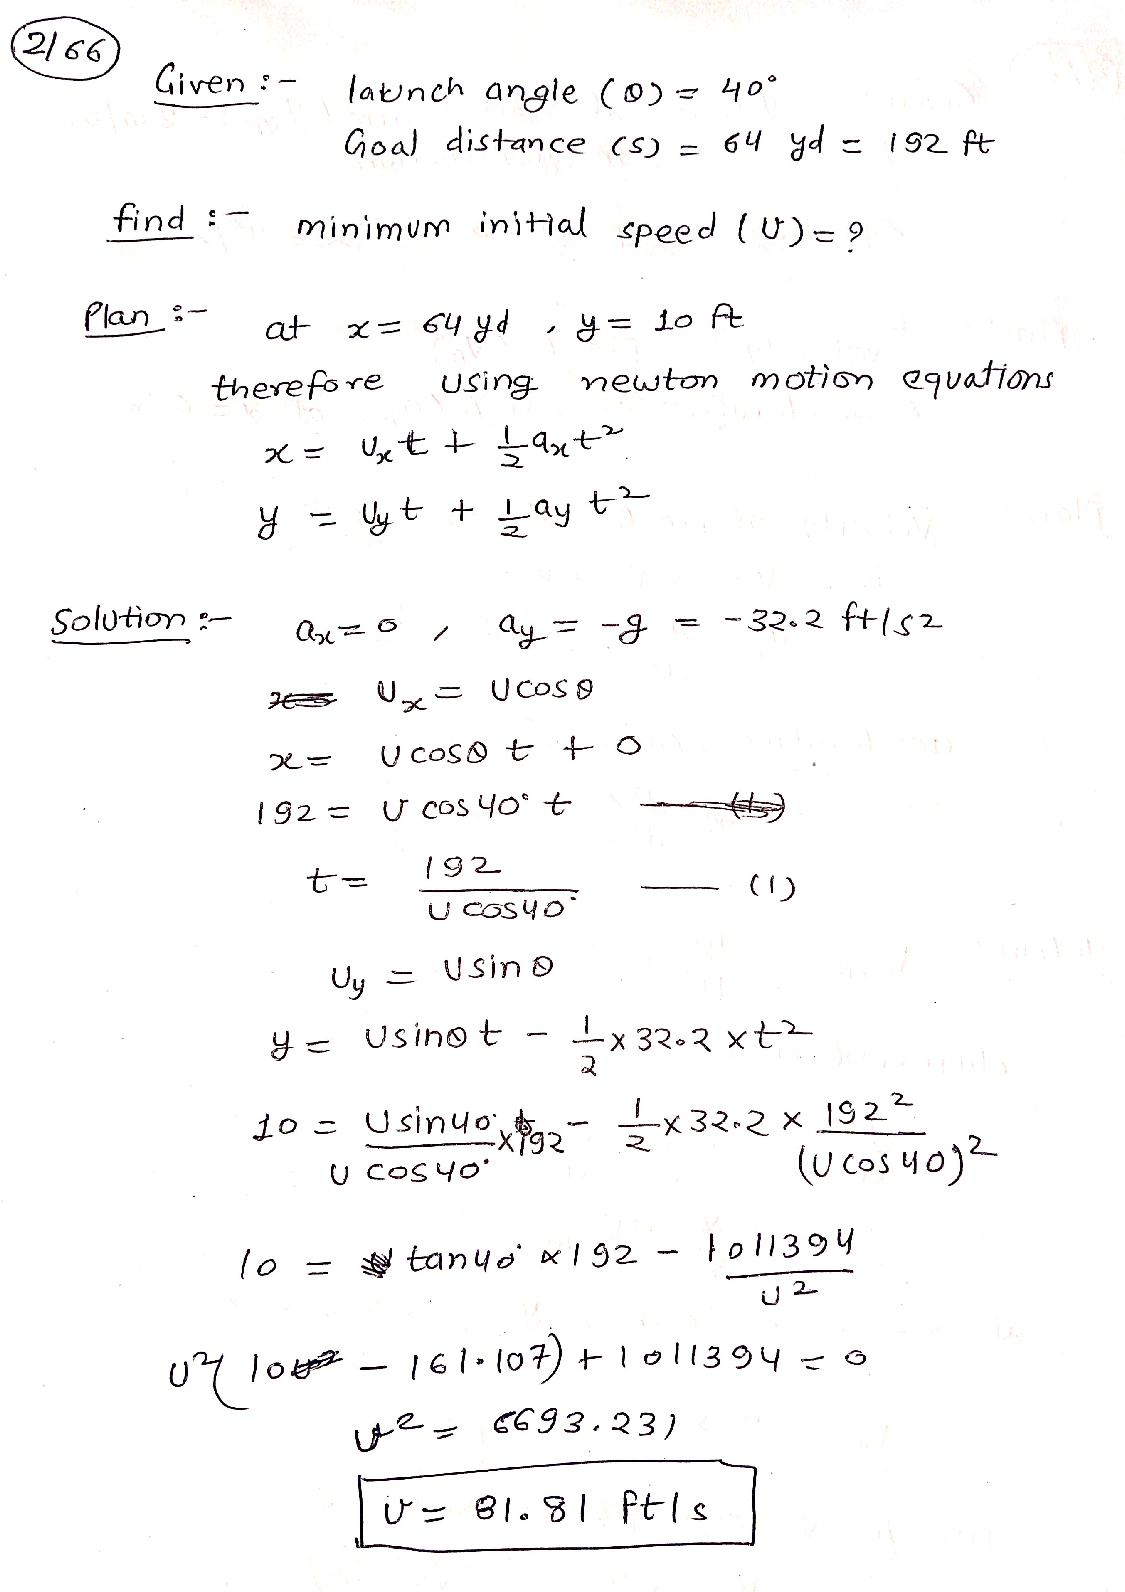 2/66
Given :- launch angle (θ) = 40°
Goal distance (s) = 64 yd = 192 ft
find :- minimum initial speed (U) = ?
Plan :- at x = 64 yd , y = 10 ft
therefore using newton motion equations
x = Uxt + 1/2 axt²
y = Uyt + 1/2 ay t²
Solution :- ax = 0 , ay = -g = -32.2 ft/s2
Ux = U cos θ
x = U cos θ t + 0
192 = U cos 40° t
t = 192 / U cos 40° — (1)
Uy = U sin θ
y = U sin θ t - 1/2 × 32.2 × t²
10 = U sin 40° / U cos 40° × 192 - 1/2 × 32.2 × 192² / (U cos 40)²
10 = tan 40° × 192 - 1011394 / U²
U²( 10 - 161.107) + 1011394 = 0
U² = 6693.231
U = 81.81 ft/s